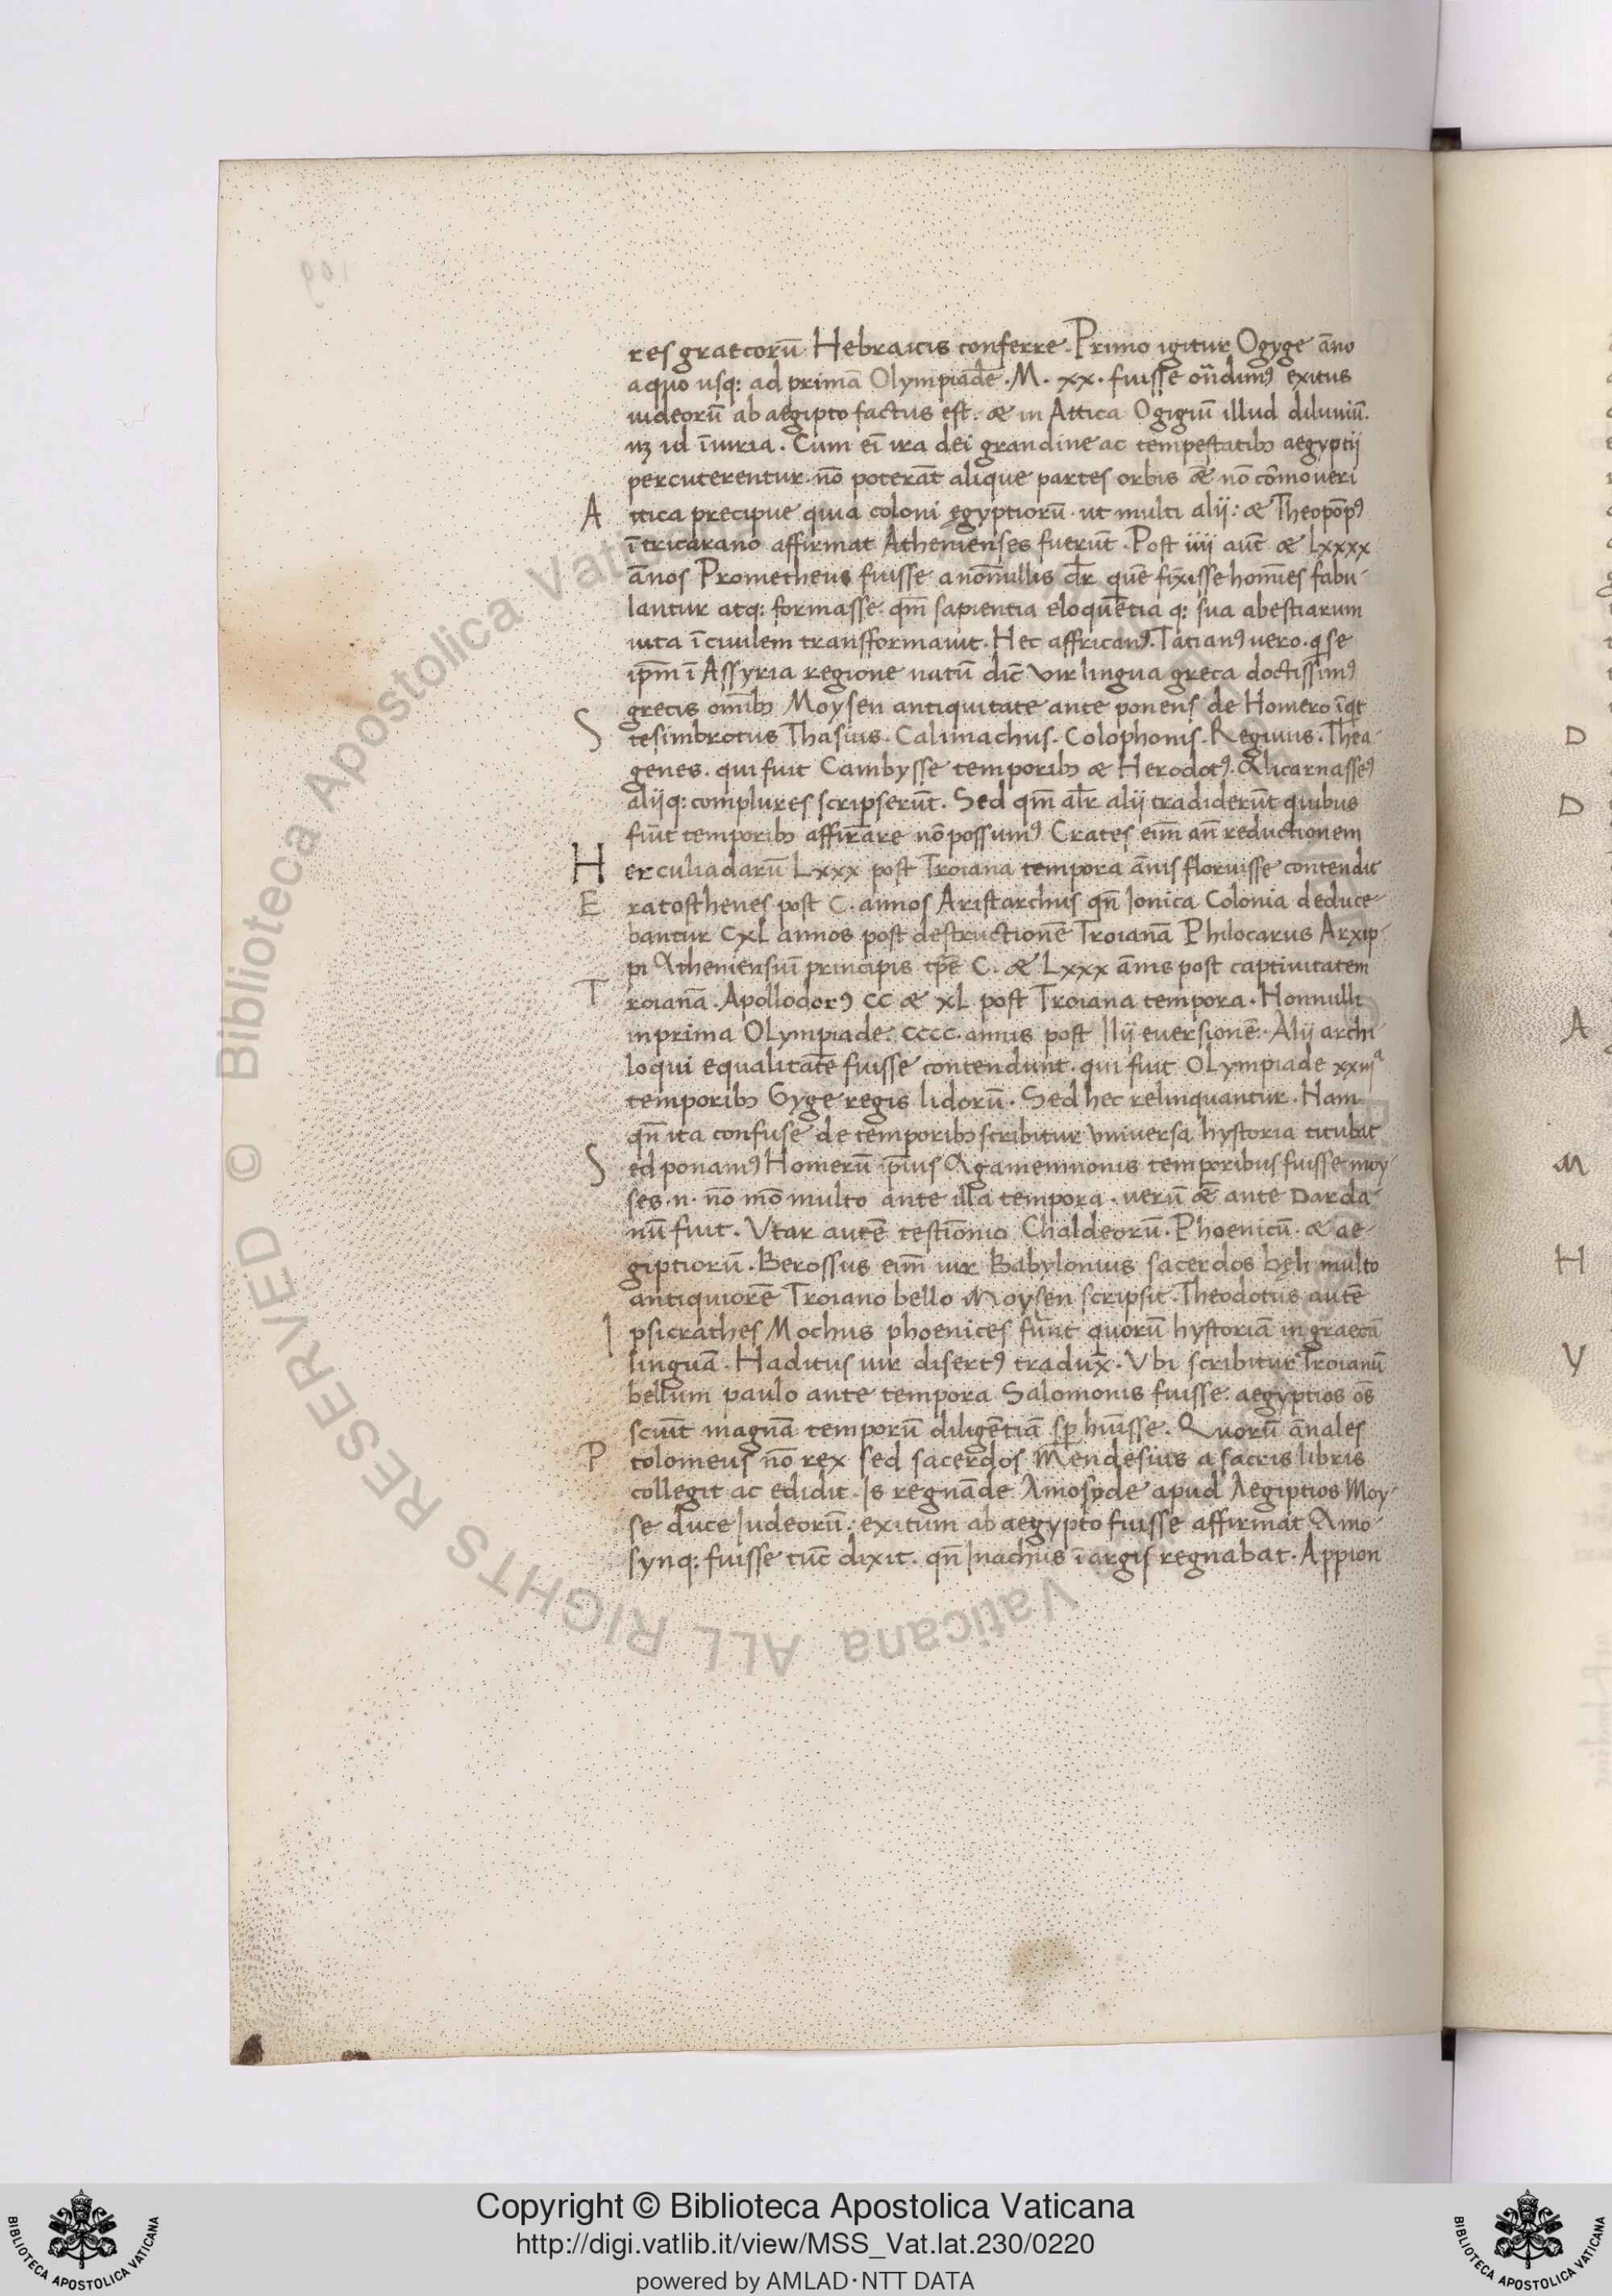 res graecorū Hebraicis conferre. Primo igitur Ogyge āno
a quo usq: ad primā Olympiadē. M. xx. fuisse on̄dimꝰ exitus
iudeorū ab aegipto factus est. & in Attica Ogigiū illud diluuiū.
nꝫ id īiuria. Cum ei̅ ira dei grandine ac tempestatibꝫ aegyptij
percuterentur. nō poterāt alique partes orbis & nō cōmoueri
Attica precipue quia coloni ęgyptiorū. ut multi alij: & Theopōpꝰ
ī tricarano affirmat Athenienses fuerūt. Post iiii aut̄ & Lxxxx
ānos Prometheus fuisse a nōnullis dr̄ quē finxisse homīes fabu-
lantur atq: formasse. qm̄ sapientia eloquētia q: sua a bestiarum
uita ī ciuilem transformauit. Hec affricanꝰ. Tatianꝰ uero. q se
ip̄m ī Assyria regione natū dic̄ vir lingua greca doctissimꝰ
grecis omībꝫ Moysen antiquitate ante ponens de Homero īqt
Stesimbrotus Thasius. Calimachus. Colophonis. Reginus. Thea-
genes. qui fuit Cambysse temporibꝫ & Herodotꝰ. Alicarnasseꝰ
alijq: complures scripserūt. Sed qm̄ alr̄ alij tradiderūt quibus
fuit temporibꝫ affirmāre nō possumꝰ Crates eim̄ an̄ reductionem
Herculiadarū Lxxx post Troiana tempora ānis floruisse contendit
Eratosthenes post C. annos Aristarchus qn̄ Ionica Colonia deduce-
bantur CXL annos post destructionē Troianā Philocarus Arxip-
pi Atheniensiū principis tp̄e C. & Lxxx ānis post captiuitatem
Troianā. Apollodorꝰ CC & XL post Troiana tempora. Nonnulli
in prima OLympiade. CCCC. annis post Ilij euersionē. Alij archi-
loqui equalitatē fuisse contendunt. qui fuit OLympiade xxiiiᵃ
temporibꝫ Gyge regis lidorū. Sed hec relinquantur. Nam
qn̄ ita confuse de temporibꝫ scribitur vniuersa hystoria titubat
Sed ponamꝰ Homerū ip̄ius Agamemnonis temporibus fuisse moy-
ses. n. nō mō multo ante illa tempora. uerū & ante Darda-
nū fuit. Vtar autē testīonio Chaldeorū. Phoenicū. & ae-
giptiorū. Berossus eim̄ uir Babylonius sacerdos bęli multo
antiquiorē Troiano bello Moysen scripsit. Theodotus autē
Ipsicrathes Mochus phoenices fūnt quorū hystoriā in graecā
linguā. Haditus uir disertꝰ tradux̄. Vbi scribitur Troianū
bellum paulo ante tempora Salomonis fuisse. aegyptios os̄
sciūt magnā temporū diligētiā sp̄ huīsse. Quorū ānales
Ptolomeus nō rex sed sacerdos Mendesius a sacris libris
collegit ac edidit. Is regnāde Amosyde apud Aegiptios Moy-
se duce Iudeorū. exitum ab aegypto fuisse affirmat Amo-
synq: fuisse tūc dixit. qn̄ Inachus ī argis regnabat. Appion
D
D
A
M
H
Y
Biblioteca Apostolica Vaticana ALL RIGHTS RESERVED ©
Copyright © Biblioteca Apostolica Vaticana
http://digi.vatlib.it/view/MSS_Vat.lat.230/0220
powered by AMLAD·NTT DATA
BIBLIOTECA APOSTOLICA VATICANA
BIBLIOTECA APOSTOLICA VATICANA